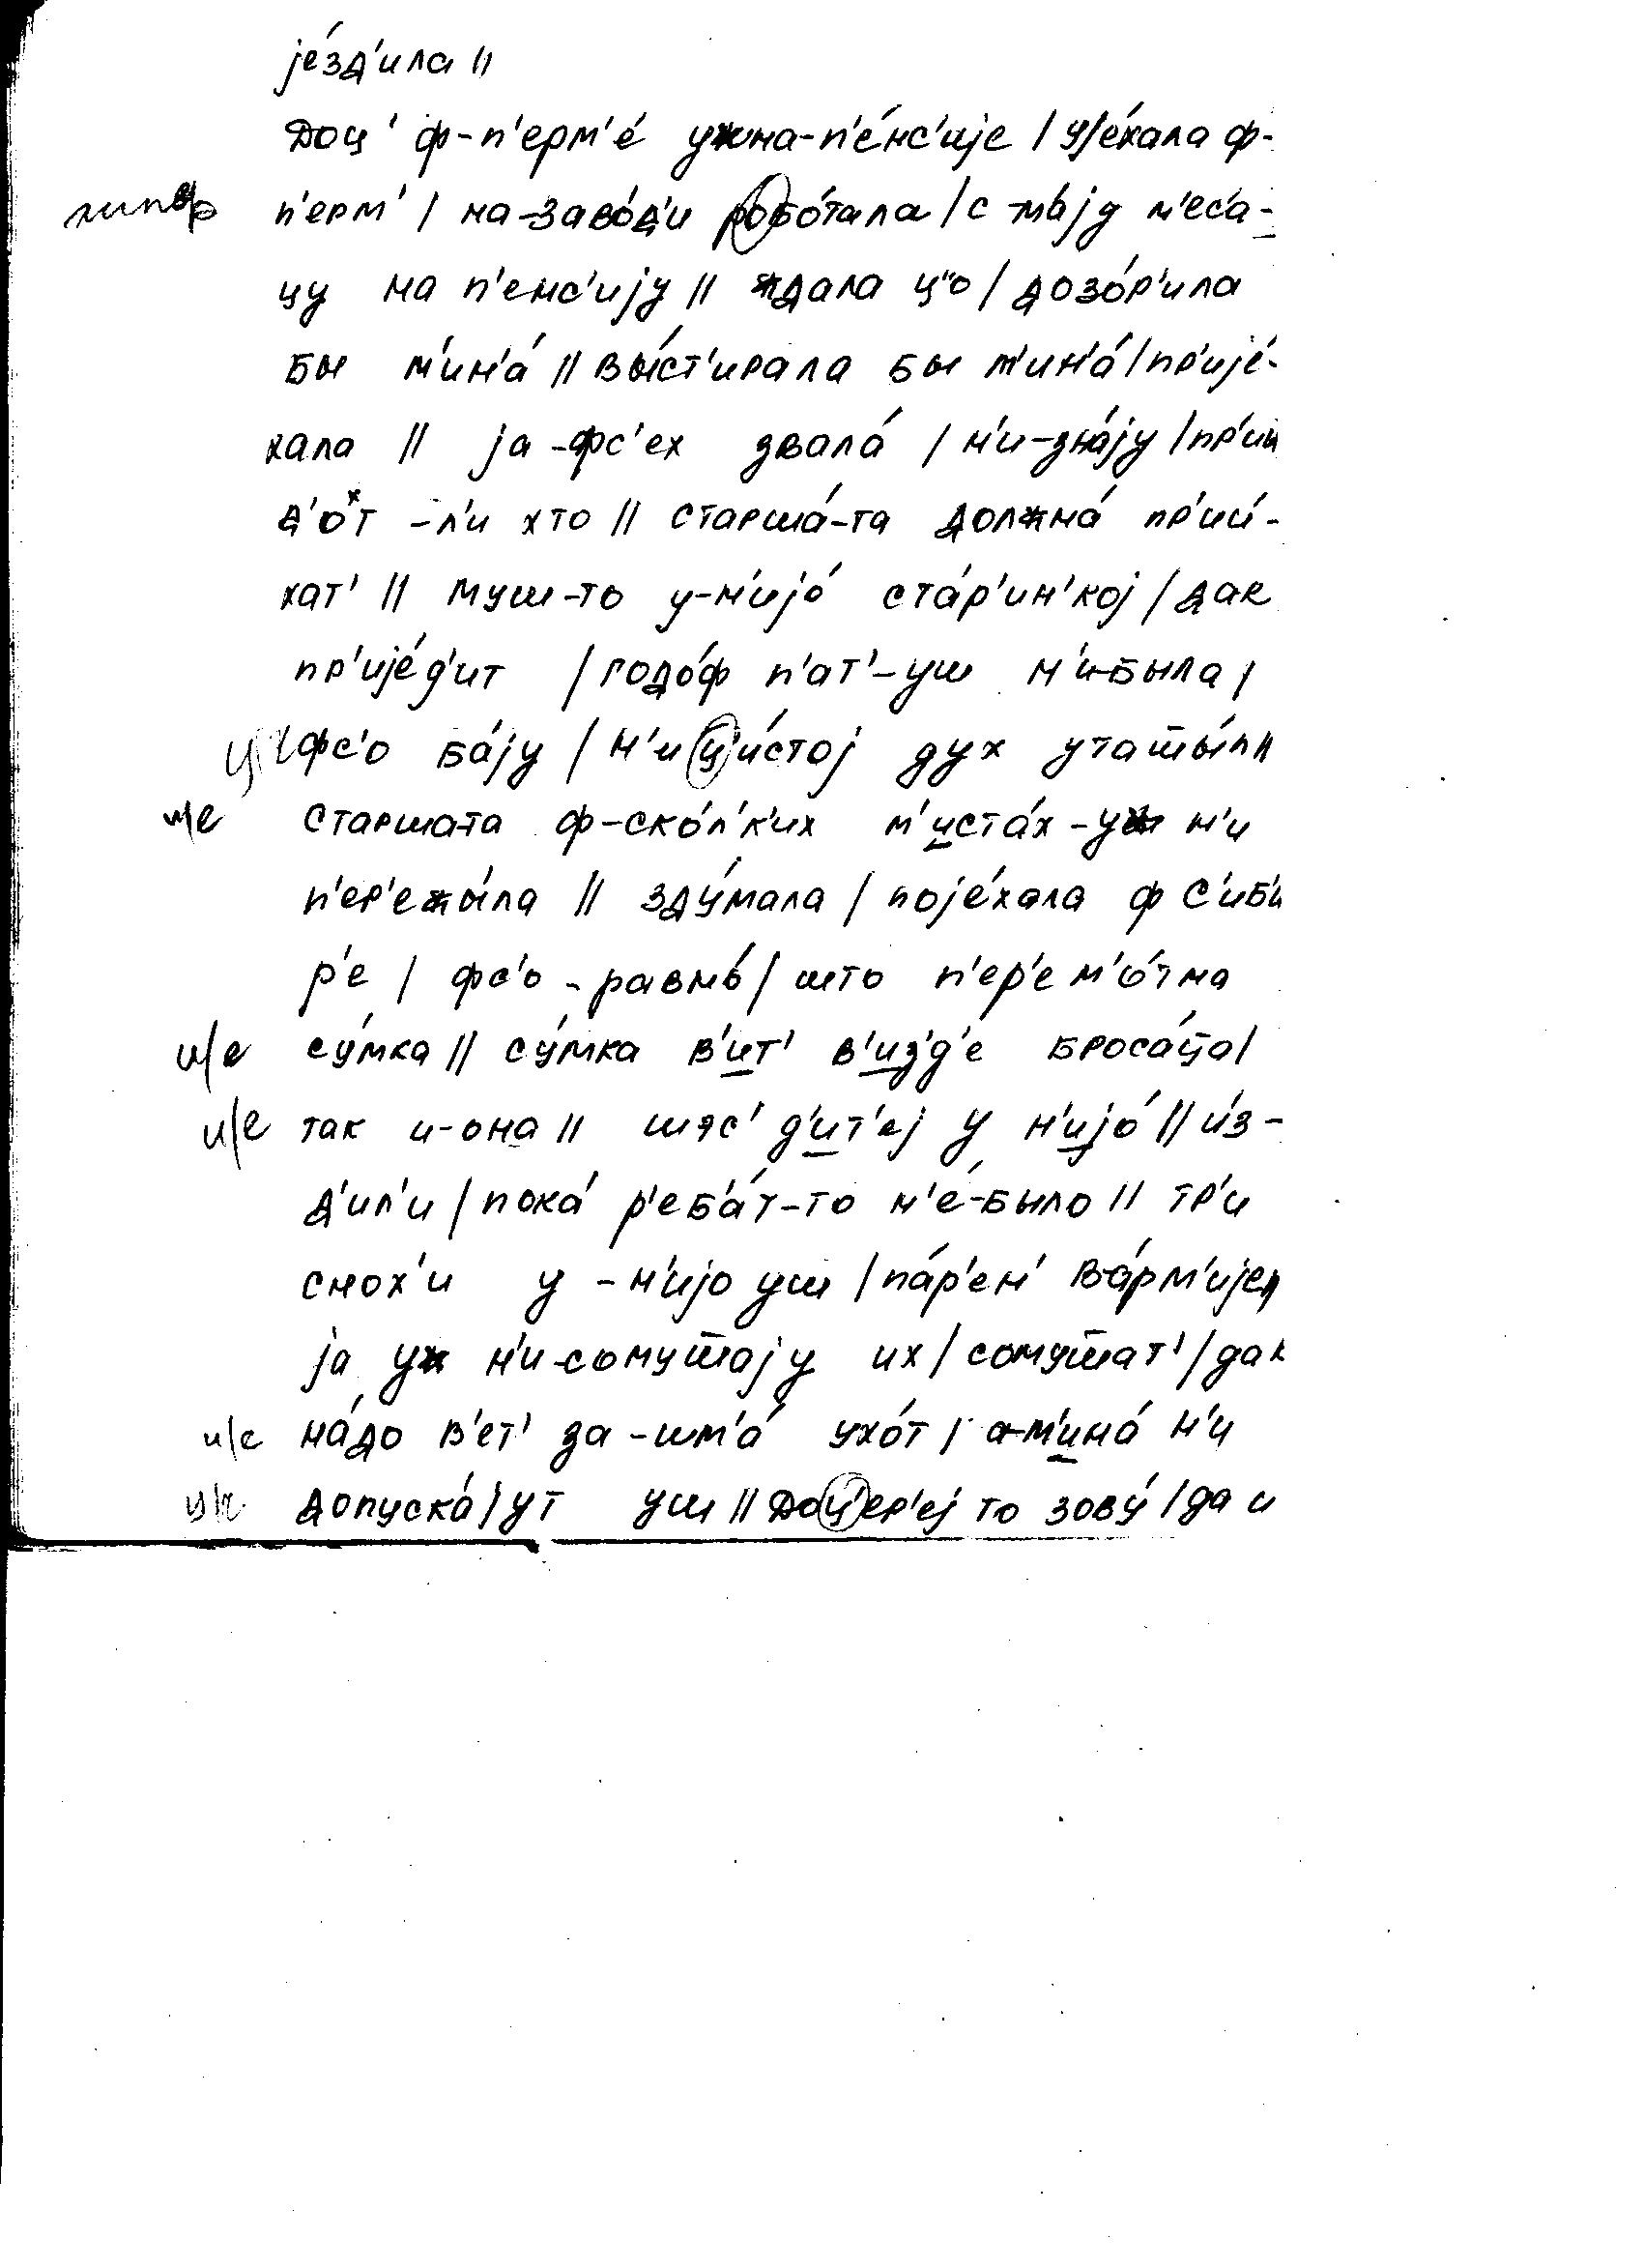 је́зд'ила ||
Доц' ф-п'ерм'е́ ужна-п'е́нс'ије | ује́хала ф-
п'ерм' | на-заво́д'и робо́тала | с ма́ју м'ес'а-
цу на п'енс'ију || ждала ц'о | дозо́р'ила
бы м'ин'а́ || вы́ст'ирала бы м'ин'а́ | пр'ије́-
хала || ја-фс'ех звала́ | н'и-зна́ју | пр'ии
д'о́т -л'и хто || старша́-та должна́ пр'ии́-
хат' || муш-то у-н'ијо́ ста́р'ин'кој | дак
пр'ије́д'ит | годо́ф п'ат'-уш н'и-была |
ц фс'о ба́ју | н'и ц'и́стој дух
и/е старшата ф-ско́л'к'их м'иста́х-уж н'и
п'ер'ежы́ла || зду́мала | поје́хала ф с'иб'и
р'е | фс'о-равно́ | што п'ер'ем'о́тна
и/е су́мка || су́мка в'ит' в'из'д'е броса́ца |
и/е так и-она || шэс' д'ит'еј у н'ијо́ || и́з-
д'ил'и | пока́ р'еб'а́т-то н'е́-было || тр'и
снох'и у-н'ијо уш | па́р'ен' ва́рм'ијел
ја уж н'и-сомуш̄ају их | сомуш̄ат' | дак
и/е на́до в'ет' за-им'а́ ухо́т | а-м'ина́ н'и
допуска́јут уш || Доц'ер'еј то зову́ | да и